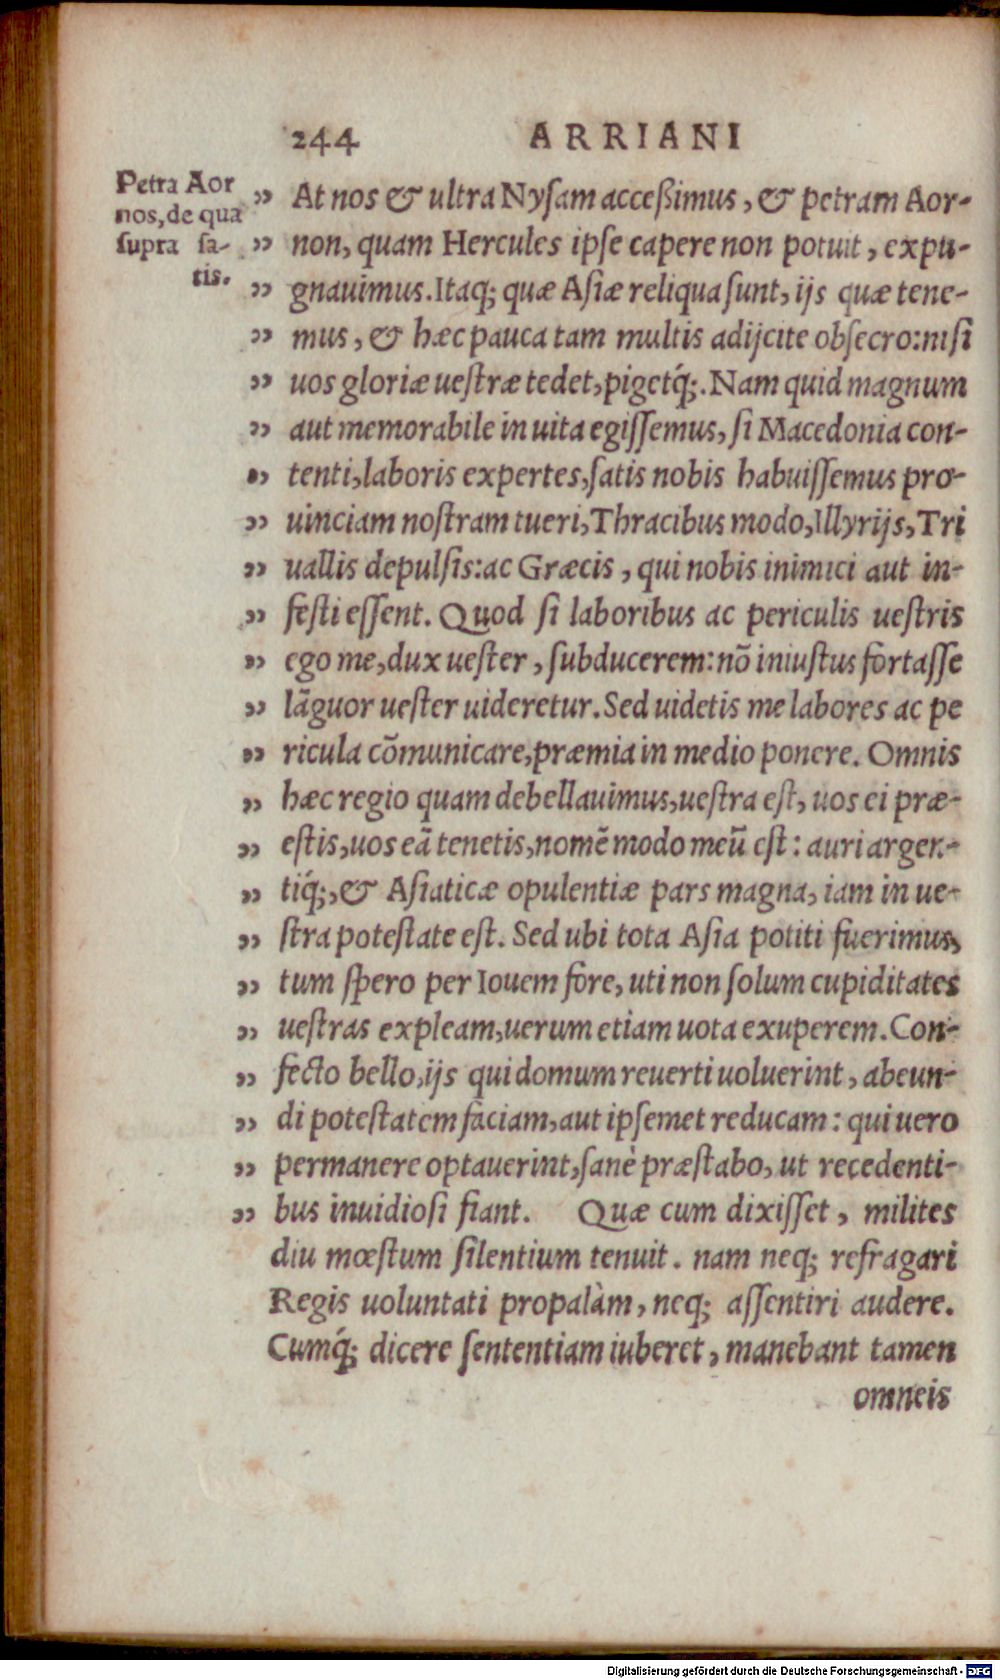 244 ARRIANI
Petra Aor
nos, de qua
supra sa-
tis.
„ At nos & ultra Nyſam acceßimus, & petram Aor-
„ non, quam Hercules ipſe capere non potuit, expu-
„ gnauimus. Itaq; quæ Aſiæ reliqua ſunt, ijs quæ tene-
„ mus, & hæc pauca tam multis adijcite obſecro: niſi
„ uos gloriæ ueſtræ tedet, pigetq́;. Nam quid magnum
„ aut memorabile in uita egiſſemus, ſi Macedonia con-
„ tenti, laboris expertes, ſatis nobis habuiſſemus pro-
„ uinciam noſtram tueri, Thracibus modo, Illyrijs, Tri
„ uallis depulſis: ac Græcis, qui nobis inimici aut in-
„ feſti eſſent. Quod ſi laboribus ac periculis ueſtris
„ ego me, dux ueſter, ſubducerem: nõ iniuſtus fortaſſe
„ lãguor ueſter uideretur. Sed uidetis me labores ac pe
„ ricula cõmunicare, præmia in medio ponere. Omnis
„ hæc regio quam debellauimus, ueſtra eſt, uos ei præ-
„ eſtis, uos eã tenetis, nomẽ modo meũ eſt: auri argen-
„ tiq́;, & Aſiaticæ opulentiæ pars magna, iam in ue-
„ ſtra poteſtate eſt. Sed ubi tota Aſia potiti fuerimus,
„ tum ſpero per Iouem fore, uti non ſolum cupiditates
„ ueſtras expleam, uerum etiam uota exuperem. Con-
„ fecto bello, ijs qui domum reuerti uoluerint, abeun-
„ di poteſtatem faciam, aut ipſemet reducam: qui uero
„ permanere optauerint, ſanè præſtabo, ut recedenti-
„ bus inuidioſi fiant. Quæ cum dixiſſet, milites
diu mœſtum ſilentium tenuit. nam neq; refragari
Regis uoluntati propalàm, neq; aſſentiri audere.
Cumq́; dicere ſententiam iuberet, manebant tamen
omneis
Digitalisierung gefördert durch die Deutsche Forschungsgemeinschaft - DFG